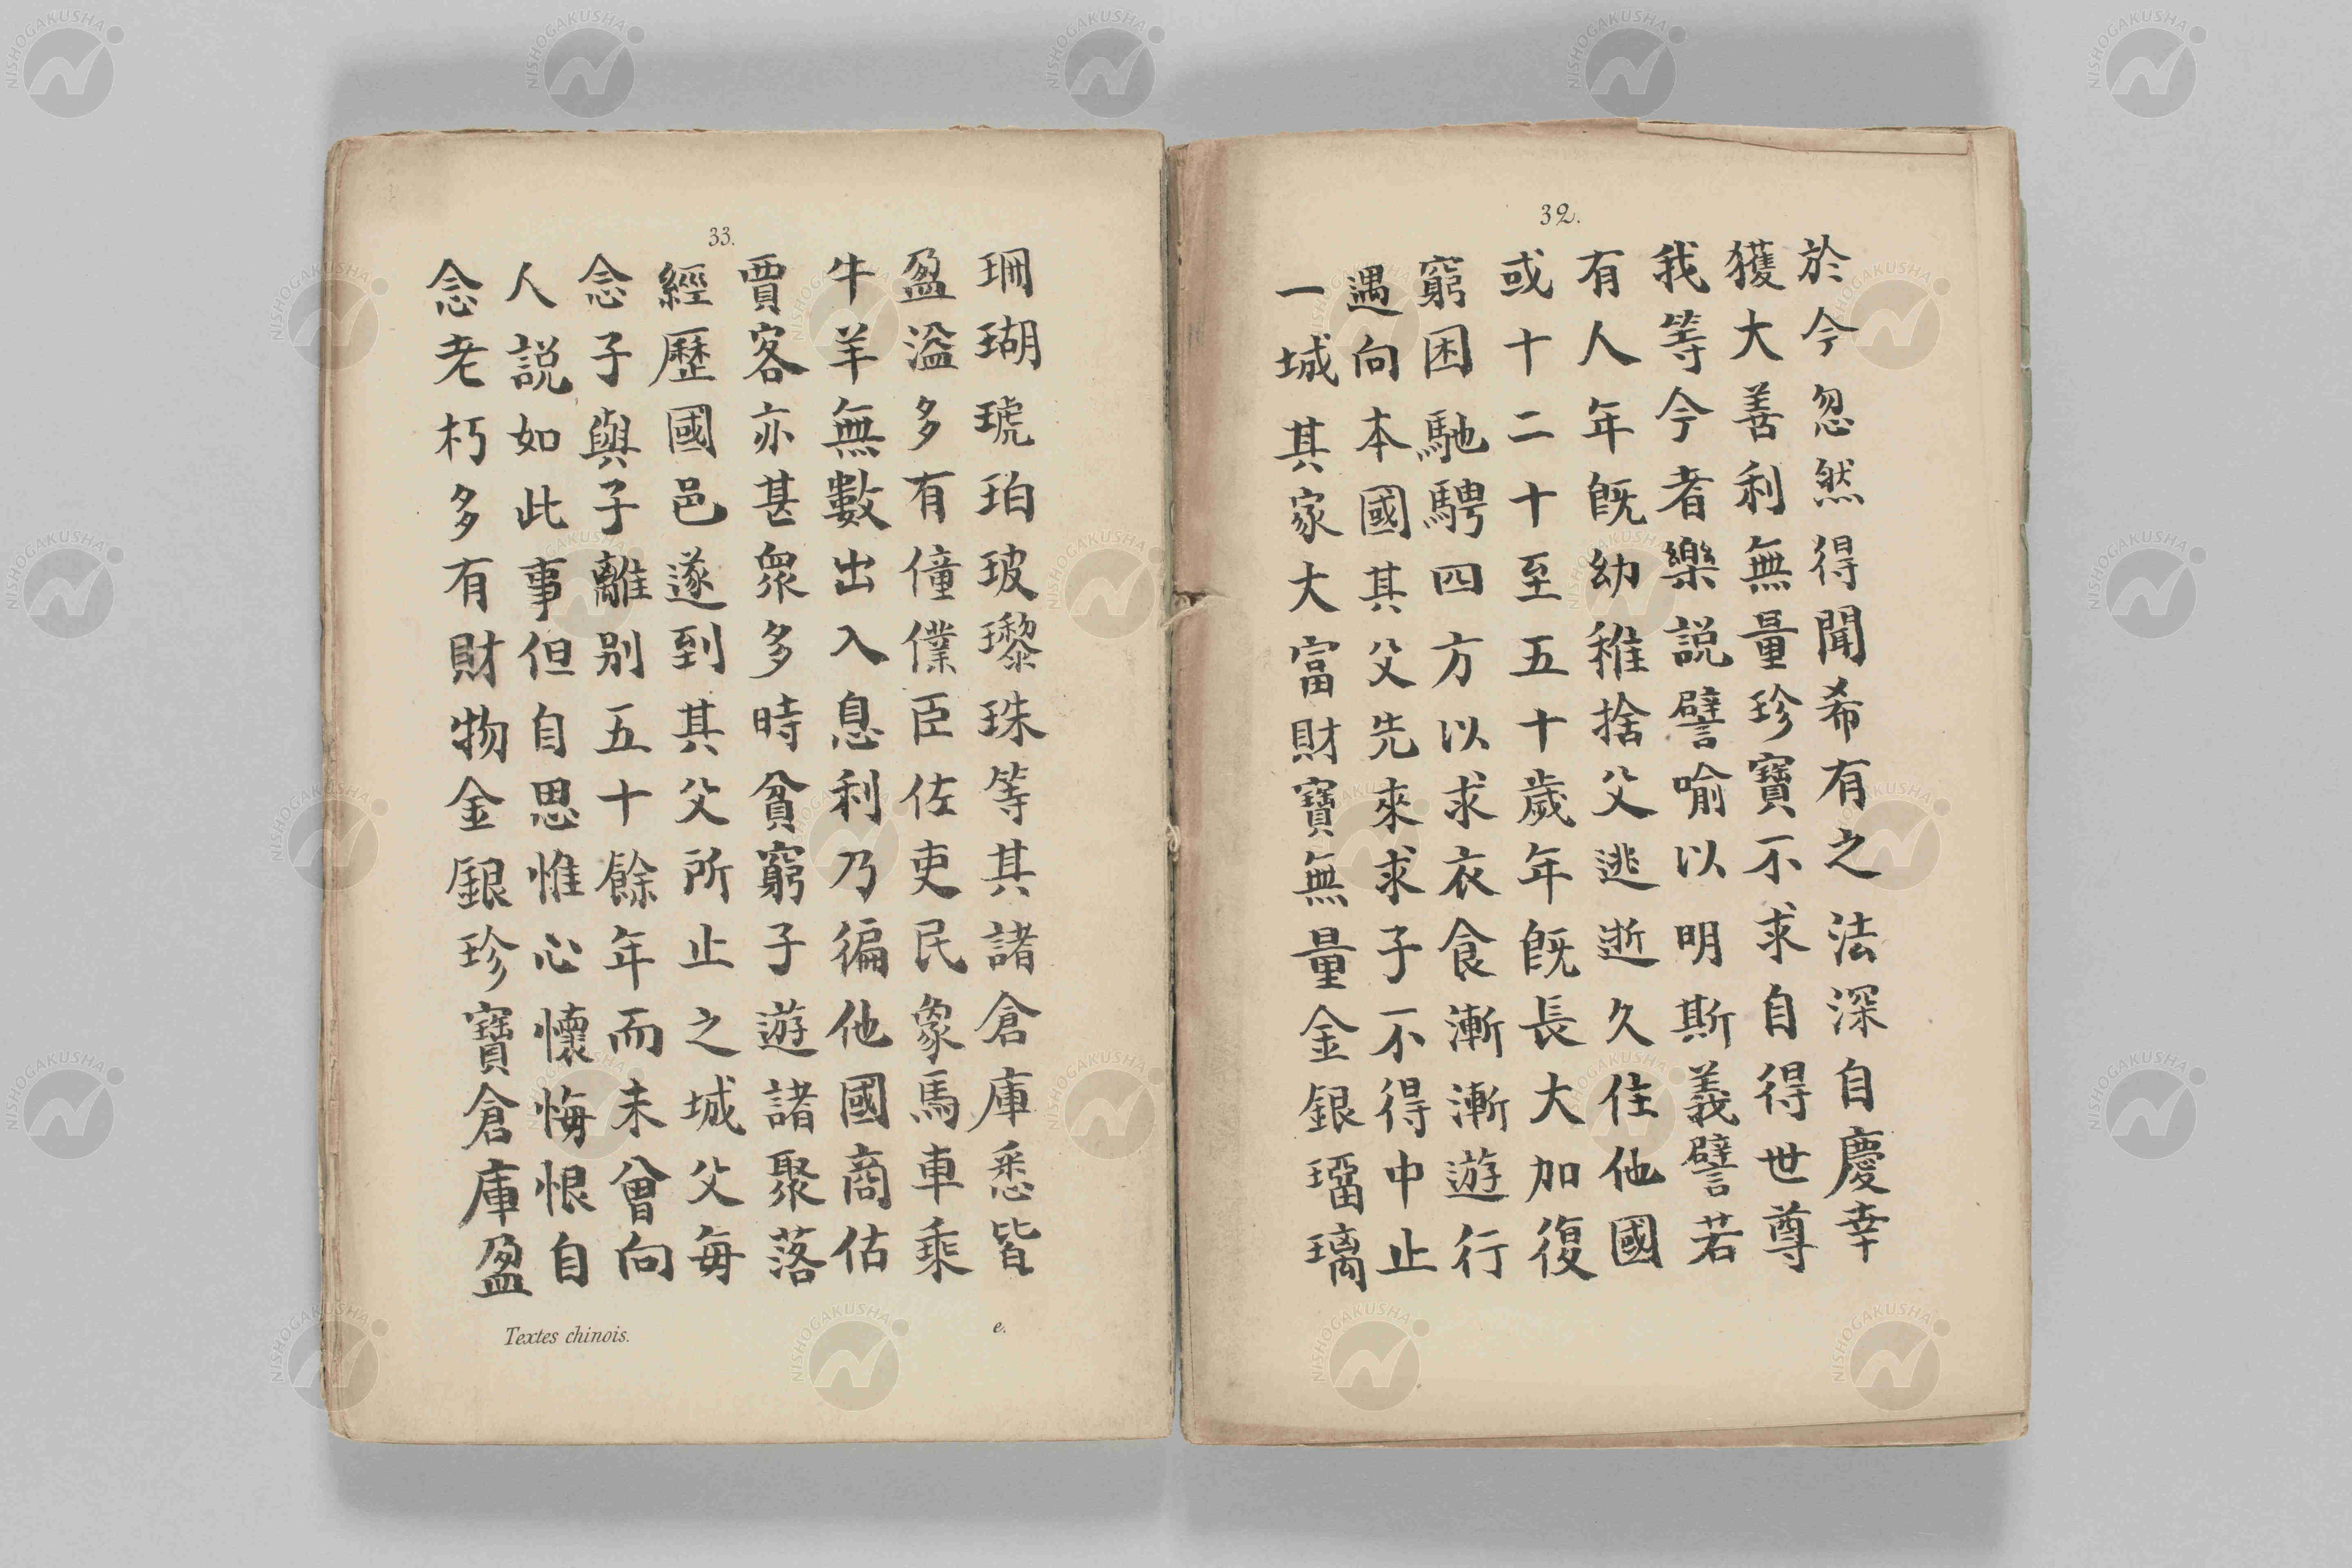 32.
於今忽然得聞希有之法深自慶幸
獲大善利無量珍寶不求自得世尊
我等今者樂説譬喻以明斯義譬若
有人年既幼稚捨父逃逝久住他國
或十二十至五十歲年既長大加復
窮困馳騁四方以求衣食漸漸遊行
遇向本國其父先來求子不得中止
一城其家大富財寶無量金銀瑠璃
33.
珊瑚琥珀玻瓈珠等其諸倉庫悉皆
盈溢多有僮僕臣佐吏民象馬車乘
牛羊無數出入息利乃徧他國商估
賈客亦甚衆多時貧窮子遊諸聚落
經歷國邑遂到其父所止之城父每
念子與子離别五十餘年而未曾向
人説如此事但自思惟心懷悔恨自
念老朽多有財物金銀珍寶倉庫盈
Textes chinois.
e.
NISHOGAKUSHA